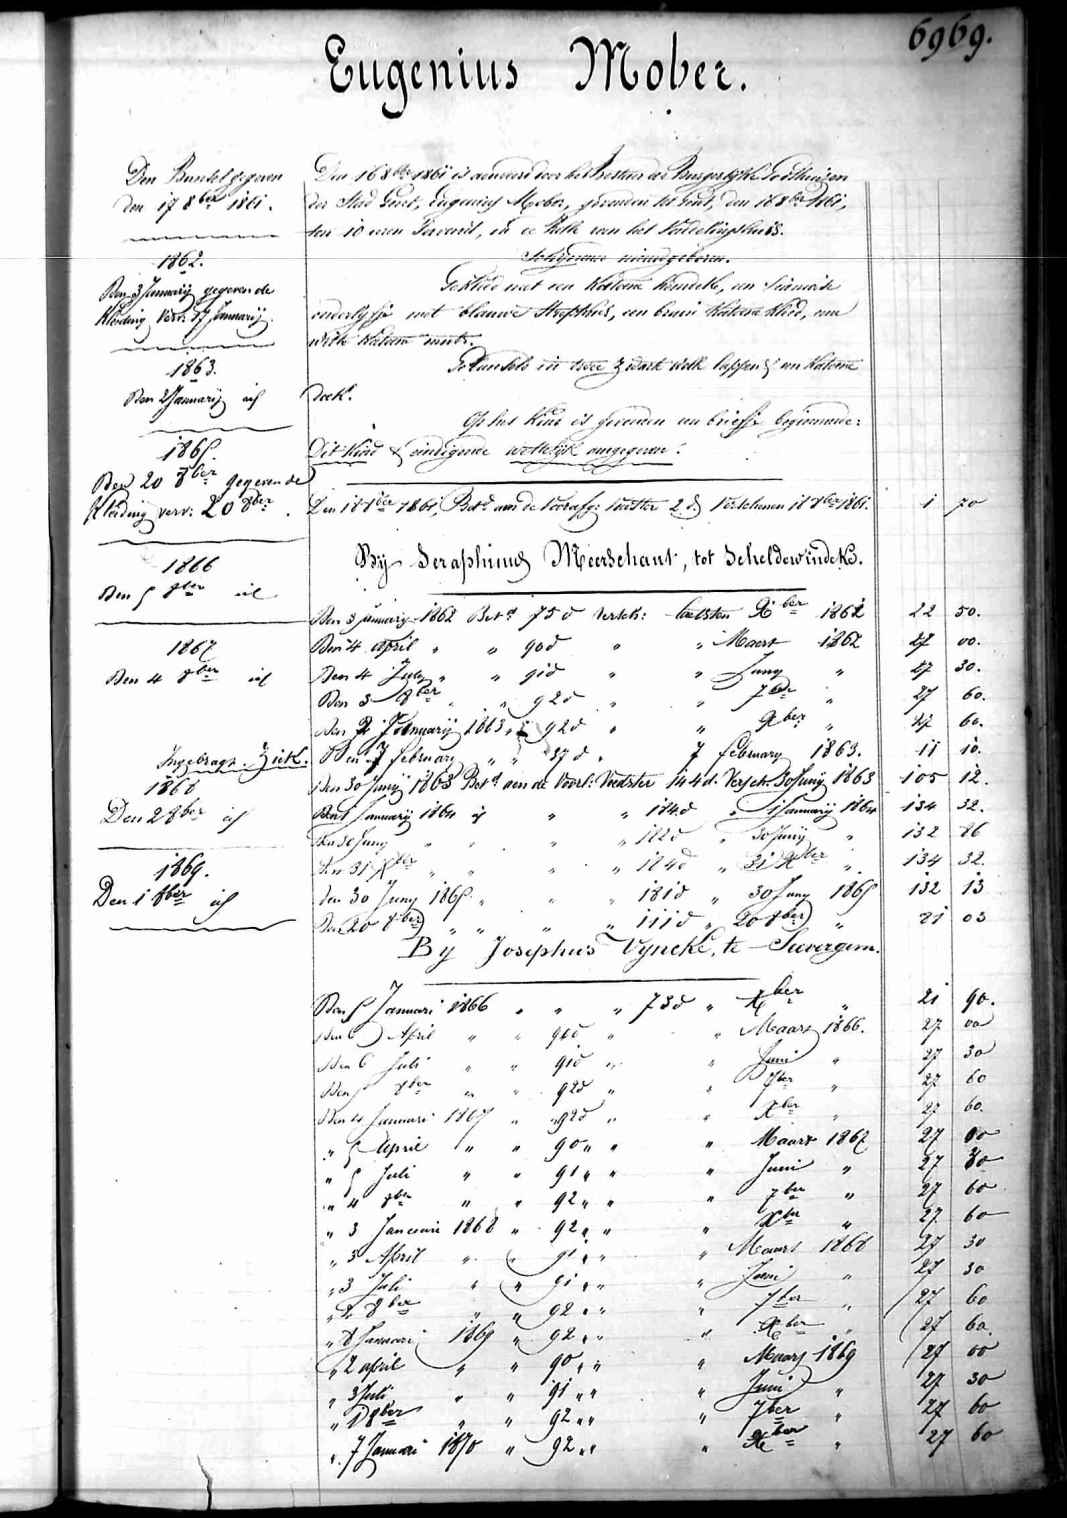 6969.
Eugenius Mober.
Den Bundel gegeven
den 17 8ber 1861.
1862.
Den 3 Januarij gegeven de
Kleeding verv: 17 Januarij.
1863.
Den 2 Januarij id
1865.
Den 20 8ber gegeven de
Kleeding verv: 20 8ber.
1866
Den 5 8ber id
1867
Den 4 8ber id
Ingebragt Ziek.
1868
Den 2 8ber id
1869.
Den 1 8ber id
Den 16 8ber 1861 is aenveerd door het Bestuer der Burgerlyke Godshuizen
der Stad Gent, Eugenius Mober, gevonden tot Gent, den 16 8ber 1861,
ten 10 uren s'avonds, in de Rolle van het Vondelingshuis.
Schijnende nieuwgeboren.
Gekleed met een katoene hemdeke, een
onderlyfje met blauwe, een bruin katoene kleed, een
witte katoene muts.
Gebunseld in twee zwarte wolle lappen & een katoene
doek.
Op het kind is gevonden een briefje beginnende:
Dit kind & eindigende wettelyk aengegeven.
Den 18 8ber 1861, Bet. aen de voorafg: voester 2 d verschenen 18 8ber 1861. 1 70
By Seraphinus Meerschaut, tot Scheldewindeke.
Den 3 januarij 1862 Bet. 75 d versch: laetsten Xber 1861 22 50.
Den 4 april " " 90 d " " Maert 1862 27 00.
Den 4 July " " 91 d " " Juny " 27 30.
Den 3 8ber " " 92 d " " 7ber " 27 60.
Den 2 Januarij 1863 " 92 d " " Xber " 27 60.
Den 7 february " " 37 d " 7 february 1863. 11 10.
Den 30 Junij 1863 Bet. aen de Voorl: Voedster 144 d. Versch. 30 Junij 1863 105 12.
Den 1 Januarij 1864 id " " 184 d " 1 Januarij 1864 134 32.
Den 30 Juny " " " " 182 d " 30 Junij " 132 86
Den 31 Xber " " " " 184 d " 31 Xber " 134 32
Den 30 Juny 1865 " " " 181 d " 30 Juny 1865 132 13
Den 20 8ber " " " " 111 d " 20 8ber " 81 03
By Josephus Vyncke, te Severgem.
Den 5 Januari 1866 " " " 73 d " Xber " 21 90.
Den 6 April " " 90 d " " Maars 1866. 27 00
Den 6 Juli " " 91 d " " Juni " 27 30
Den 5 8ber " " 92 d " " 7ber " 27 60
Den 4 Januari 1867 " " 92 d " " Xber " 27 60.
" 5 April " " 90 " " " Maars 1867 27 00
" 5 Juli " " 91 " " " Juni " 27 30
" 4 8ber " " 92 " " " 7ber " 27 60
" 3 Januari 1868 " 92 " " " Xber " 27 60
" 3 April " " 91 " " " Maars 1868 27 30
" 3 Juli " " 91 " " " Juni " 27 30
" 2 8ber " " 92 " " " 7ber " 27 60
" 8 Januari 1869 " 92 " " " Xber " 27 60.
" 2 april " " 90 " " " Maars 1869 27 00
" 3 Juli " " 91 " " " Juni " 27 30
" 1 8ber " " 92 " " " 7ber " 27 60
" 7 Januari 1870 " 92 " " " Xber " 27 60